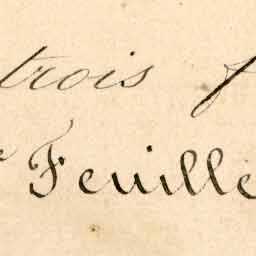 trois f
Feuille